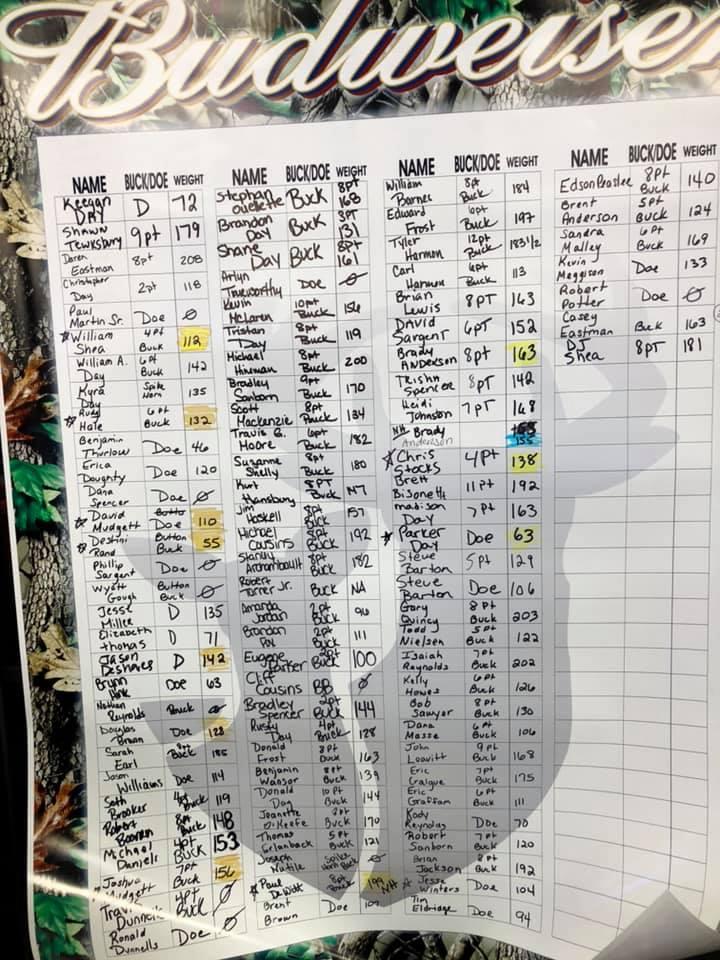 Budweiser
NAME BUCK/DOE WEIGHT
Keegan Day D 72
Shawn Tewksbury 9pt 179
Daren Eastman 8pt 208
Christopher Day 2pt 118
Paul Martin Sr. Doe Ø
William Shea 4pt Buck 112
William A. Day 6pt Buck 142
Kyra Day Spike Horn 135
Rudy Hale 6pt Buck 132
Benjamin Thurlow Doe 46
Erica Doughty Doe 120
Dana Spencer Doe Ø
David Mudgett Doe 110
Destini Rand Button Buck 55
Phillip Sargent Doe Ø
Wyatt Gough Button Buck Ø
Jesse Miller D 135
Elizabeth Thomas D 71
Jason Deshaies D 142
Brynn Doe 63
Nathan Reynolds Buck
Douglas Brown Doe 128
Sarah Earl Buck 185
Jason Williams Doe 114
Seth Brooker Buck 119
Robert 8pt Buck 148
Michael Daniels 4pt Buck 153
Joshua Mudgett 7pt Buck 156
Travis Dunnells 4pt Buck Ø
Ronald Dunnells Doe Ø
NAME BUCK/DOE WEIGHT
Stephan Ouellette Buck 8pt 168
Brandon Day Buck 3pt 131
Shane Day Buck 8pt 161
Arlyn Trueworthy Doe Ø
Kevin McLaren 10pt Buck 156
Tristan Day 8pt Buck 119
Michael Hinman 8pt Buck 200
Bradley Sanborn 9pt Buck 170
Scott Mackenzie 8pt Buck 134
Travis G. Moore 6pt Buck 182
Suzanne Shelly 8pt Buck 180
Kurt Hansbury 8PT Buck NT
Jim Haskell 8pt Buck 157
Michael Cousins 8pt Buck 192
Stanley Archambault 8pt Buck 182
Robert Turner Jr. Buck NA
Amanda Jordan 2pt Buck 96
Brandon 2pt Buck 111
Eugene Parker Buck 100
Cliff Cousins BB Ø
Bradley Spencer 2pt Buck 144
Rusty Day 4pt Buck 128
Donald Frost 8pt Buck 163
Benjamin Wanser 8pt Buck 139
Donald Day 10pt Buck 144
Jeanette O'Keefe Buck 170
Thomas Erlanback 5pt Buck 121
Joseph Nutile Spike Horn Buck Ø
Paul DeWitt 8pt Buck 199 NH
Brent Brown Doe 107
NAME BUCK/DOE WEIGHT
William Barnes 8pt Buck 184
Edward Frost 6pt Buck 197
Tyler Harmon 12pt Buck 183 1/2
Carl Harmon 6pt Buck 113
Brian Lewis 8PT 163
David Sargent 6PT 152
Brady Anderson 8pt 163
Trisha Spencer 8pt 142
Heidi Johnston 7PT 168
NH Brady Anderson 155
Chris Stocks 4Pt 138
Brett Bisonett 11Pt 192
Madison Day 7Pt 163
Parker Day Doe 63
Steve Barton 5pt 129
Steve Barton Doe 106
Gary Quincy 8Pt Buck 203
Todd Nielsen 5Pt Buck 122
Isaiah Reynolds 7pt Buck 202
Kelly Howes 6pt Buck 126
Bob Sawyer 8pt Buck 130
Dana Masse 6pt Buck 106
John Leavitt 9pt Buck 168
Eric Craigue 7pt Buck 175
Eric Graffam 6pt Buck 111
Kody Reynolds Doe 70
Robert Sanborn 7pt Buck 120
Brian Jackson 8pt Buck 192
Jesse Winters Doe 104
Tim Eldridge Doe 94
NAME BUCK/DOE WEIGHT
Edson Peaslee 8pt Buck 140
Brent Anderson 5pt Buck 124
Sandra Malley 6pt Buck 169
Kevin Meggison Doe 133
Robert Potter Doe Ø
Casey Eastman Buck 163
DJ Shea 8PT 181